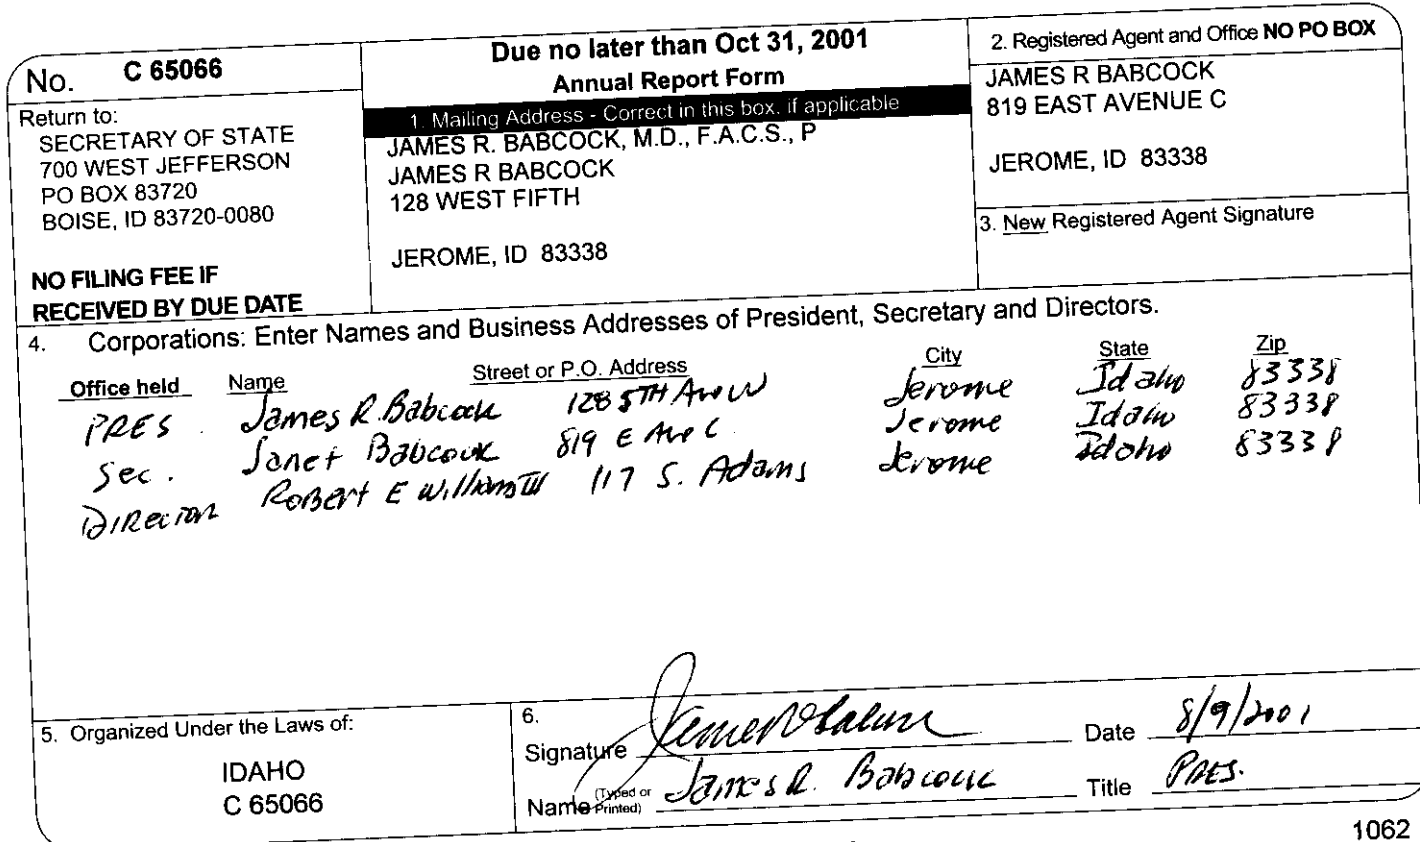 No. C 65066
Return to:
SECRETARY OF STATE
700 WEST JEFFERSON
PO BOX 83720
BOISE, ID 83720-0080
NO FILING FEE IF
RECEIVED BY DUE DATE
Due no later than Oct 31, 2001
Annual Report Form
1. Mailing Address - Correct in this box, if applicable
JAMES R. BABCOCK, M.D., F.A.C.S., P
JAMES R BABCOCK
128 WEST FIFTH
JEROME, ID 83338
2. Registered Agent and Office NO PO BOX
JAMES R BABCOCK
819 EAST AVENUE C
JEROME, ID 83338
3. New Registered Agent Signature
4. Corporations: Enter Names and Business Addresses of President, Secretary and Directors.
Office held Name Street or P.O. Address City State Zip
PRES. James R. Babcock 128 5TH Ave W Jerome Idaho 83338
Sec. Janet Babcock 819 E Ave C Jerome Idaho 83338
DIRECTOR ROBERT E Williams III 117 S. Adams Jerome Idaho 83338
5. Organized Under the Laws of:
IDAHO
C 65066
6.
Signature Date 8/9/2001
Name (Typed or Printed) James R. Babcock Title PRES.
1062